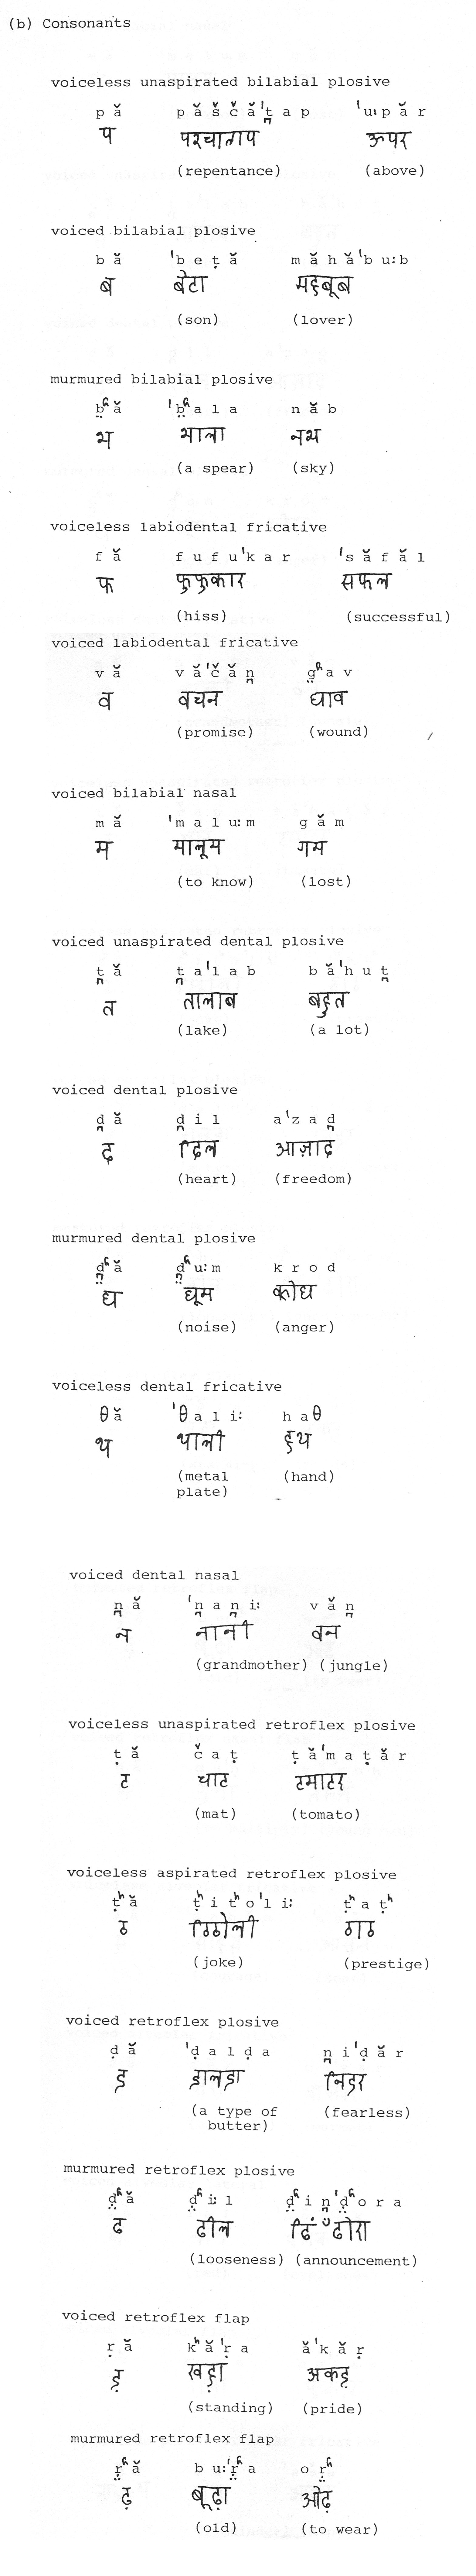 (b) Consonants
voiceless unaspirated bilabial plosive
p ă p ă š č ă ˈt̪ a p ˈu: p ă r
प पश्चाताप ऊपर
(repentance) (above)
voiced bilabial plosive
b ă ˈb e ṭ ă m ă h ă ˈb u: b
ब बेटा महबूब
(son) (lover)
murmured bilabial plosive
b̤ʱ ă ˈb̤ʱ a l a n ă b
भ भाला नभ
(a spear) (sky)
voiceless labiodental fricative
f ă f u f u ˈk a r ˈs ă f ă l
फ फुफुकार सफल
(hiss) (successful)
voiced labiodental fricative
v ă v ă ˈč ă n̪ g̤ʱ a v
व वचन घाव
(promise) (wound)
voiced bilabial nasal
m ă ˈm a l u: m g ă m
म मालूम गम
(to know) (lost)
voiced unaspirated dental plosive
t̪ ă t̪ a ˈl a b b ă ˈh u t̪
त तालाब बहुत
(lake) (a lot)
voiced dental plosive
d̪ ă d̪ i l a ˈz a d̪
द दिल आज़ाद
(heart) (freedom)
murmured dental plosive
d̪̤ʱ ă d̪̤ʱ u: m k r o d
ध धूम क्रोध
(noise) (anger)
voiceless dental fricative
θ ă ˈθ a l i: h a θ
थ थाली हथ
(metal (hand)
plate)
voiced dental nasal
n̪ ă ˈn̪ a n̪ i: v ă n̪
न नानी वन
(grandmother) (jungle)
voiceless unaspirated retroflex plosive
ṭ ă č a ṭ ṭ ă ˈm a ṭ ă r
ट चाट टमाटर
(mat) (tomato)
voiceless aspirated retroflex plosive
ṭʰ ă ṭʰ i ṭʰ o ˈl i: ṭʰ a ṭʰ
ठ ठिठोली ठाठ
(joke) (prestige)
voiced retroflex plosive
ḍ ă ˈḍ a l ḍ a n̪ i ˈḍ ă r
ड डालडा निडर
(a type of (fearless)
butter)
murmured retroflex plosive
ḍ̤ʱ ă ḍ̤ʱ i: l ḍ̤ʱ i n̪ ˈḍ̤ʱ o r a
ढ ढील ढिंढोरा
(looseness) (announcement)
voiced retroflex flap
ṛ ă kʰ ă ˈṛ a ă ˈk ă ṛ
ड़ खड़ा अकड़
(standing) (pride)
murmured retroflex flap
ṛ̤ʱ ă b u: ˈṛ̤ʱ a o ṛ̤ʱ
ढ़ बूढ़ा ओढ़
(old) (to wear)